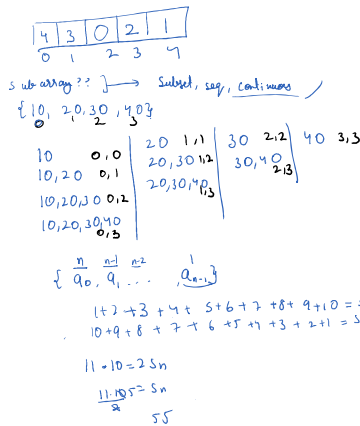 4 3 0 2 1
0 1 2 3 4
Subarray?? ] → Subset, seq, continuous
{10, 20, 30, 40}
0 1 2 3
10 0,0 20 1,1 30 2,2 40 3,3
10,20 0,1 20,30 1,2 30,40 2,3
10,20,30 0,2 20,30,40 1,3
10,20,30,40 0,3
n n-1 n-2 1
{ a0, a1 ... , an-1 }
1+2+3+4+ 5+6+7+8+9+10 = S
10+9+8+7+6+5+4+3+2+1 = S
11*10 = 2Sn
11.10 5 = Sn
2
55